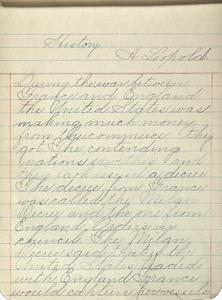 History
A. Leopold.
During the war between
France and England
the United States was
making much money
from the commerce they
got. The contending
nations saw this and
they each issued a decree
The decree from France
was called the Milan
Decree and the one from
England, Orders in
council. The Milan
Decree said that if the
United States traded
with England France
would capture